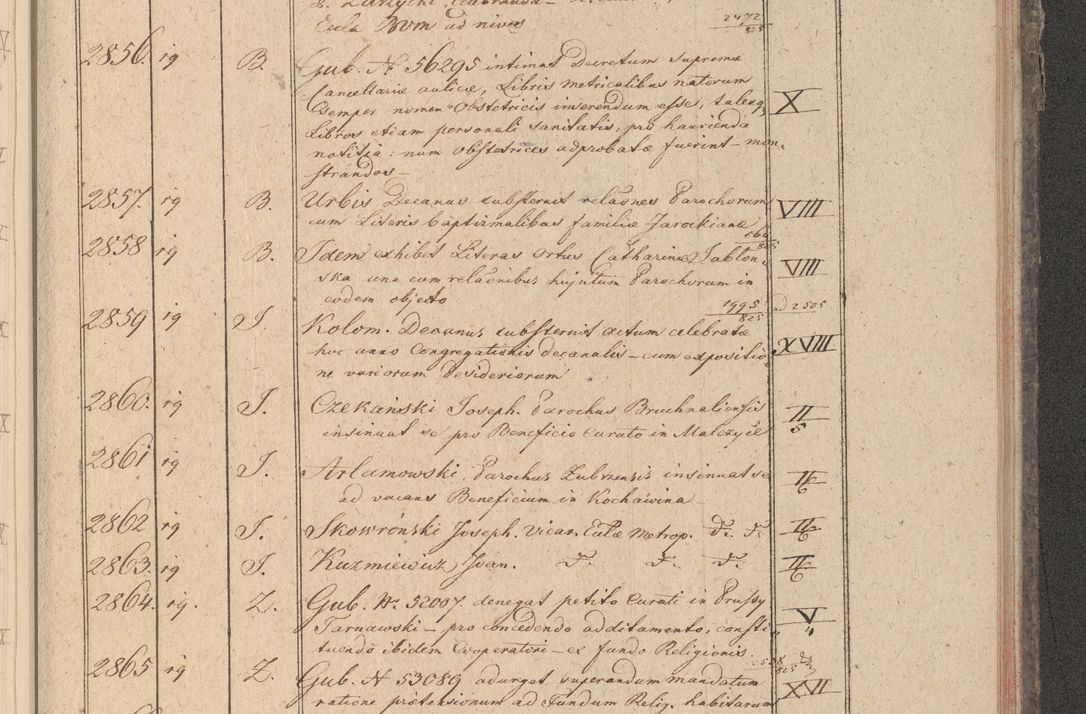 Eccla BVM ad nives 2472/825
2856. 19 B. Gub. N 56295 intimat Decretum Supremæ
Cancellariæ aulicæ, Libris metricalibus natorum
Semper nomen Obstetricis inserendum esse, talesq X
Libros etiam personali sanitatis, pro haurienda
notitia: num Obstetrices adprobatæ fuerint – mon-
strandos –
2857. 19 B. Urbis Decanus substernit relaões Parochorum VIII
cum Literis baptismalibus familiæ Jarockianæ
2858 19 B. Idem exhibet Literas ortus Catharinæ Jablon- VIII
ska una cum relaõnibus hujatum Parochorum in
eodem objecto 1995/825 ad 2505
2859 19 J. Kolom. Decanus substernit actum celebratæ
hoc anno Congregationis decanalis – cum expositio- XVIII
ne variorum desideriorum
2860. 19 J. Czekański Joseph. Parochus Bruchnaliensis II
insinuat se pro Beneficio Curato in Malczyce 5
2861 19 J. Arlamowski, Parochus Zubrzensis insinuat se II
ad vacans Beneficium in Kochawina –
2862 19 J. Skowroński Joseph. Vican. Eccłæ Metrop. d. d. II
2863. 19 J. Kuzmiewicz Joan. d. d. d. II
2864. 19. Z. Gub. N. 52007. denegat petito Curati in Prussy V
Tarnawski – pro concedendo additamento, consti
tuendo ibidem Cooperatori – ex fundo Religionis.
2865 19 Z. Gub. N 53089 adurget superandum mandatum XVII
ratione prætensionum ad Fundum Relig. habitarum